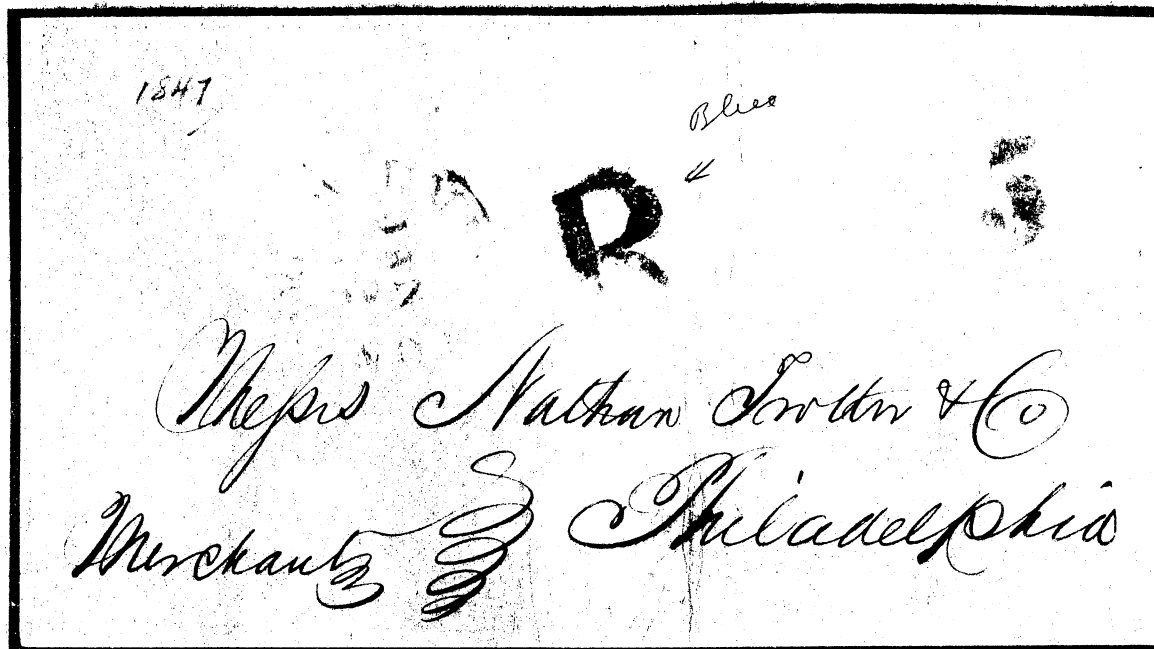 1847
Blue
R 5
Messrs Nathan Trotter & Co
Merchants Philadelphia